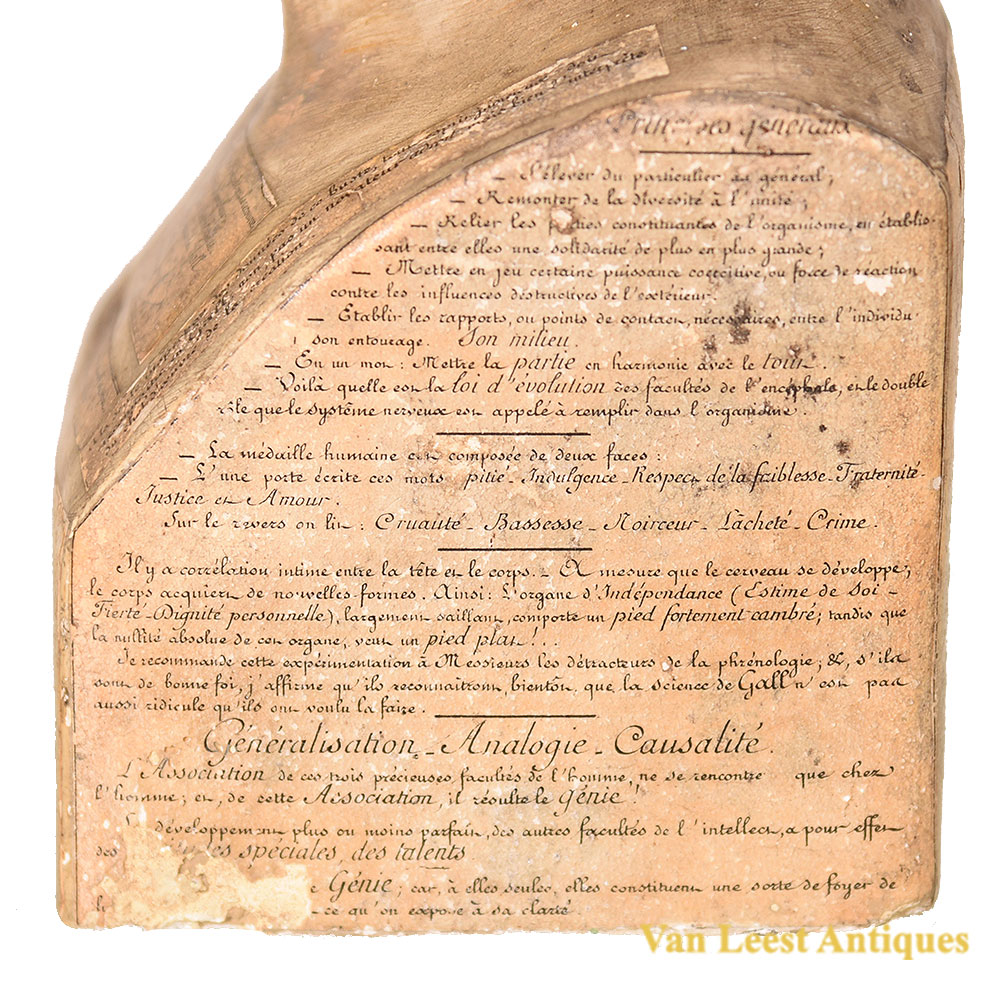 Principes généraux
_ S'élever du particulier au général;
_ Remonter de la diversité à l'unité;
_ Relier les parties constituantes de l'organisme, en établis-
sant entre elles une solidarité de plus en plus grande;
_ Mettre en jeu certaine puissance coercitive, ou force de réaction
contre les influences destructives de l'extérieur.
_ Etablir les rapports, ou points de contact, nécessaires, entre l'individu
son entourage. Son milieu.
_ En un mot: Mettre la partie en harmonie avec le tout.
_ Voilà quelle est la loi d'évolution des facultés de l'encéphale, et le double
rôle que le système nerveux est appelé à remplir dans l'organisme.
_ La médaille humaine est composée de deux faces:
_ L'une porte écrite ces mots pitié - Indulgence - Respect de la faiblesse - Fraternité -
Justice et Amour.
Sur le revers on lit: Cruauté - Bassesse - Noirceur - Lâcheté - Crime.
Il y a corrélation intime entre la tête et le corps. - A mesure que le cerveau se développe,
le corps acquiert de nouvelles formes. Ainsi: L'organe d'Indépendance (Estime de Soi -
Fierté - Dignité personnelle), largement saillant, comporte un pied fortement cambré; tandis que
la nullité absolue de cet organe, veut un pied plat!..
Je recommande cette expérimentation à Messieurs les détracteurs de la phrénologie; &, s'ils
sont de bonne foi, j'affirme qu'ils reconnaîtront, bientôt, que la science de Gall n'est pas
aussi ridicule qu'ils ont voulu la faire.
Généralisation - Analogie - Causalité.
L'Association de ces trois précieuses facultés de l'homme, ne se rencontre que chez
l'homme; et, de cette Association, il résulte le Génie!
développement plus ou moins parfait, des autres facultés de l'intellect, a pour effet
des spéciales, des talents
Génie; car, à elles seules, elles constituent une sorte de foyer de
ce qu'on expose à sa clarté.
Van Leest Antiques